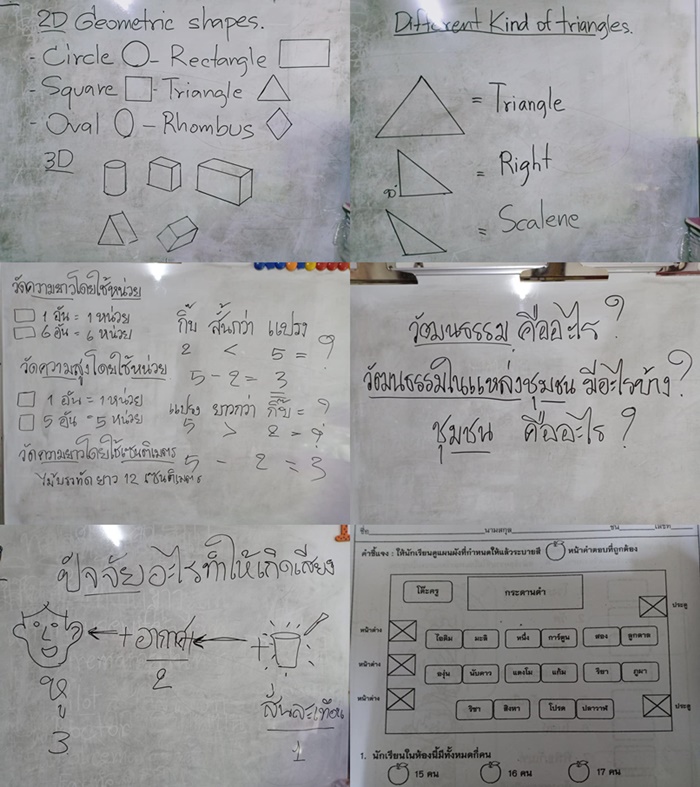 2D Geometric shapes.
- Circle - Rectangle
- Square - Triangle
- Oval - Rhombus
3D
Different Kind of triangles.
= Triangle
90° = Right
= Scalene
วัดความยาวโดยใช้หน่วย
1 อัน = 1 หน่วย
6 อัน = 6 หน่วย
วัดความสูงโดยใช้หน่วย
1 อัน = 1 หน่วย
5 อัน = 5 หน่วย
วัดความยาวโดยใช้เซนติเมตร
ไม้บรรทัด ยาว 12 เซนติเมตร
กิ๊บ สั้นกว่า แปรง
2 < 5 = ?
5 - 2 = 3
แปรง ยาวกว่า กิ๊บ = ?
5 > 2 = ?
5 - 2 = 3
วัฒนธรรม คืออะไร ?
วัฒนธรรมในแหล่งชุมชน มีอะไรบ้าง ?
ชุมชน คืออะไร ?
ปัจจัยอะไรทำให้เกิดเสียง
+ อากาศ +
หู 2 สั่นสะเทือน
3 1
ชื่อ นามสกุล ชั้น เลขที่
คำชี้แจง : ให้นักเรียนดูแผนผังที่กำหนดให้แล้วระบายสี หน้าคำตอบที่ถูกต้อง
โต๊ะครู กระดานดำ
ประตู
หน้าต่าง ไอติม มะลิ หนึ่ง การ์ตูน สอง ลูกตาล
หน้าต่าง องุ่น นับดาว แตงโม แก้ม ริชา ภูผา
หน้าต่าง ริชา สิงหา โปรด ปลาวาฬ ประตู
1. นักเรียนในห้องนี้มีทั้งหมดกี่คน
15 คน 16 คน 17 คน